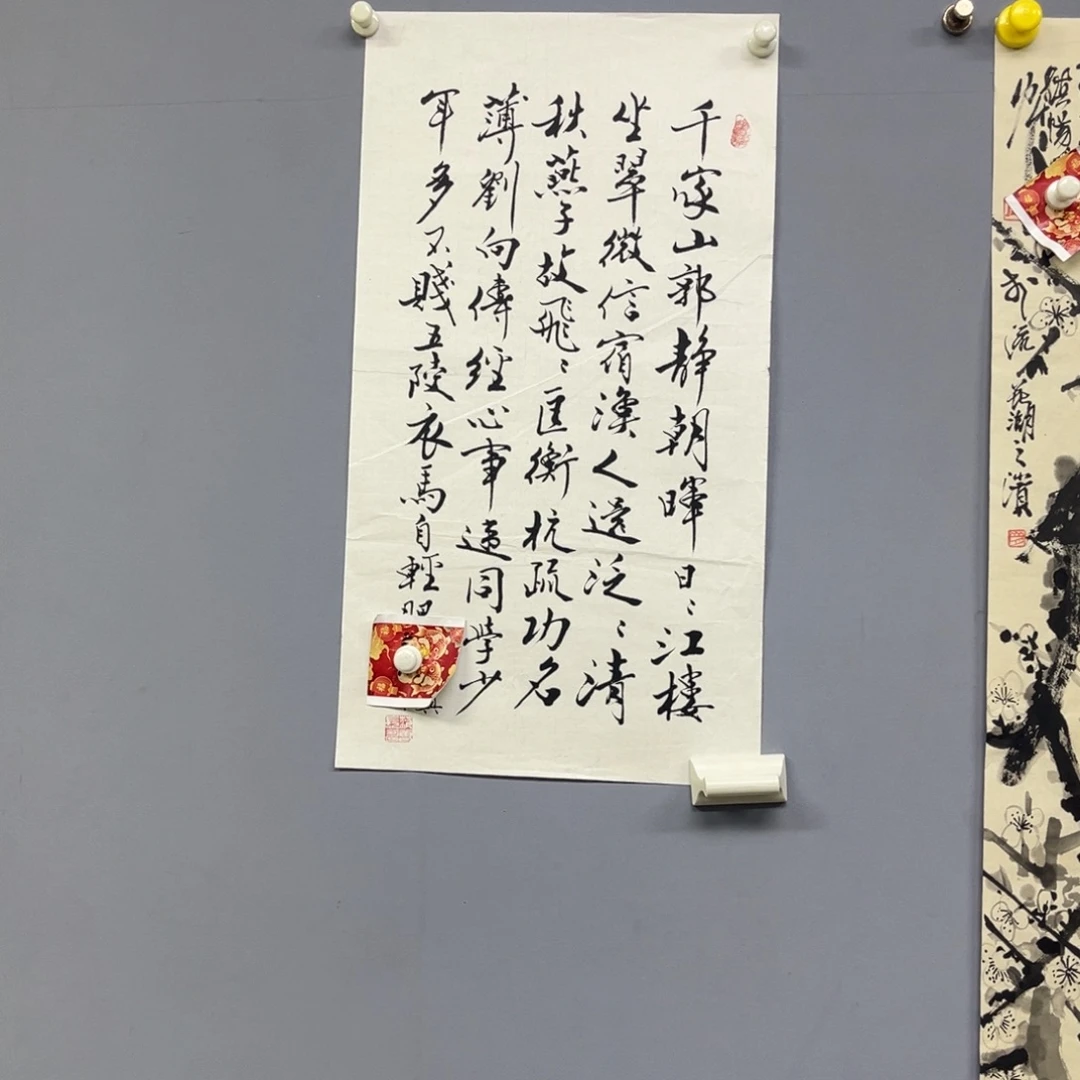 千家山郭静朝暉日〻江樓
坐翠微信宿漁人還泛〻清
秋燕子故飛〻匡衡抗疏功名
薄劉向傳經心事違同學少
年多不賤五陵衣馬自輕肥
之濱